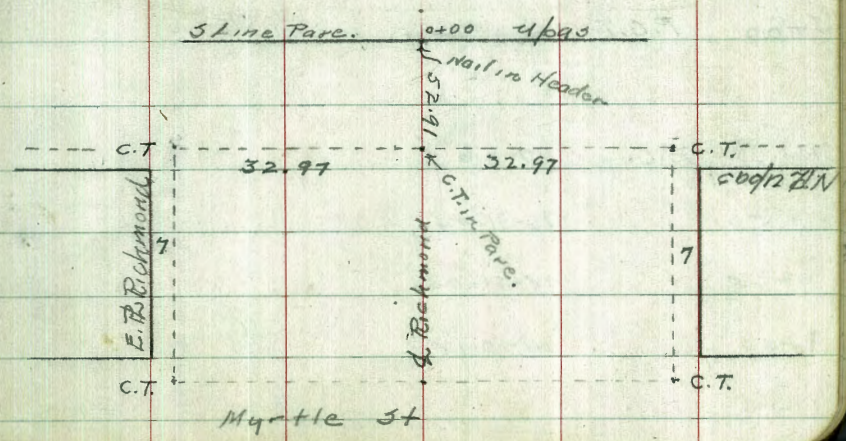 S Line Pave. 0+00 Upas
Nail in Header
52.91
C.T. C.T.
32.97 32.97
C.T. in Pave.
N PL Upas
E. PL Richmond
7 7
℄ Richmond
C.T. C.T.
Myrtle St